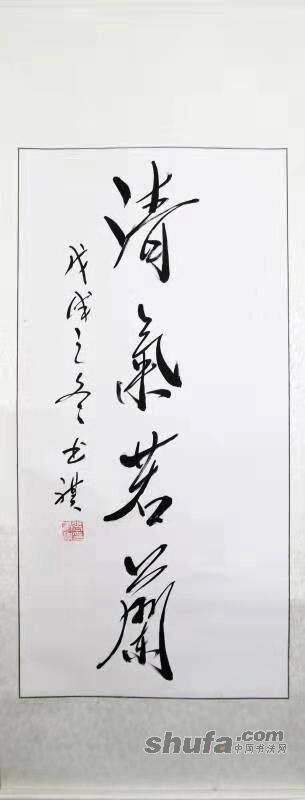 清氣若蘭
戊戌之冬
shufa.com
中国书法网